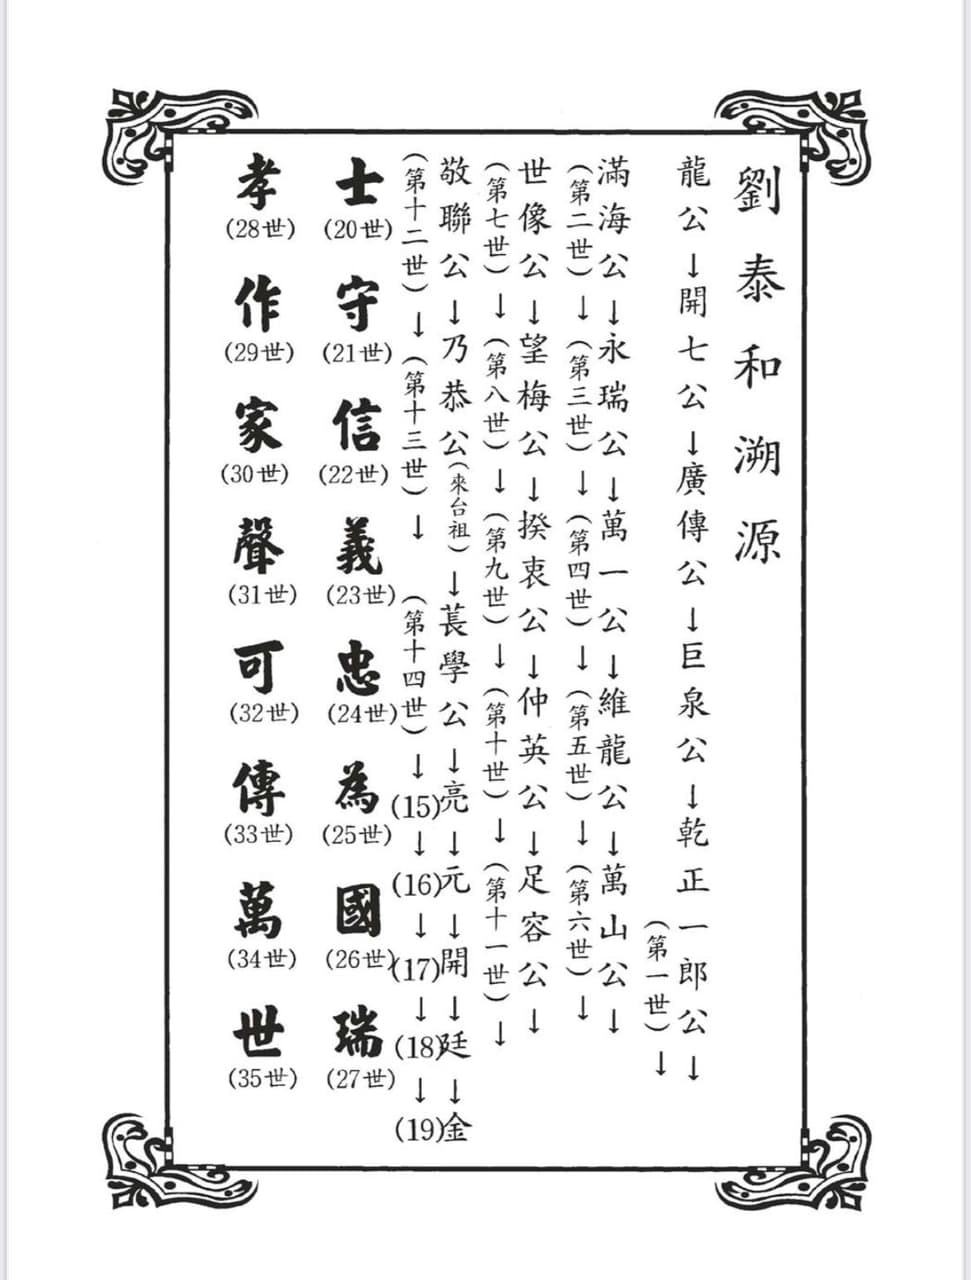 劉泰和溯源
龍公→開七公→廣傳公→巨泉公→乾正一郎公→
(第一世)→
滿海公→永瑞公→萬一公→維龍公→萬山公→
(第二世)→(第三世)→(第四世)→(第五世)→(第六世)→
世像公→望梅公→揆衷公→仲英公→足容公→
(第七世)→(第八世)→(第九世)→(第十世)→(第十一世)→
敬聯公→乃恭公(來台祖)→萇學公→亮→元→開→廷→金
(第十二世)→(第十三世)→(第十四世)→(15)→(16)→(17)→(18)→(19)
士(20世)守(21世)信(22世)義(23世)忠(24世)為(25世)國(26世)瑞(27世)
孝(28世)作(29世)家(30世)聲(31世)可(32世)傳(33世)萬(34世)世(35世)